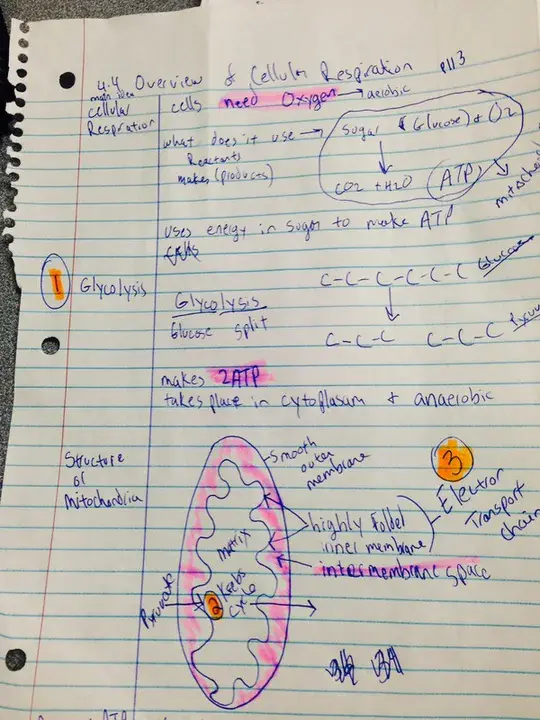 4.4 Overview of Cellular Respiration p113
main idea
cellular
Respiration
cells need Oxygen → aerobic
what does it use →
Reactants
makes (products)
Sugar (Glucose) + O2
CO2 + H2O ATP
uses energy in sugar to make ATP
1 Glycolysis
C-C-C-C-C-C Glucose
Glycolysis
Glucose split
C-C-C C-C-C
makes 2ATP
takes place in cytoplasum + anaerobic
Structure
of
Mitochondria
Smooth
outer
membrane
3
Electron
Transport
chain
highly folded
inner membrane
intermembrane space
matrix
Pyruvate
2 Krebs
cycle